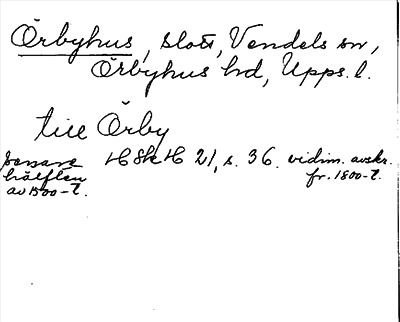 Örbyhus, slott, Vendels sn,
Örbyhus hd, Upps. l.
till Örby
senare hälften av 1500-t.
HSkH 21, s. 36. vidim. avskr. fr. 1800-t.